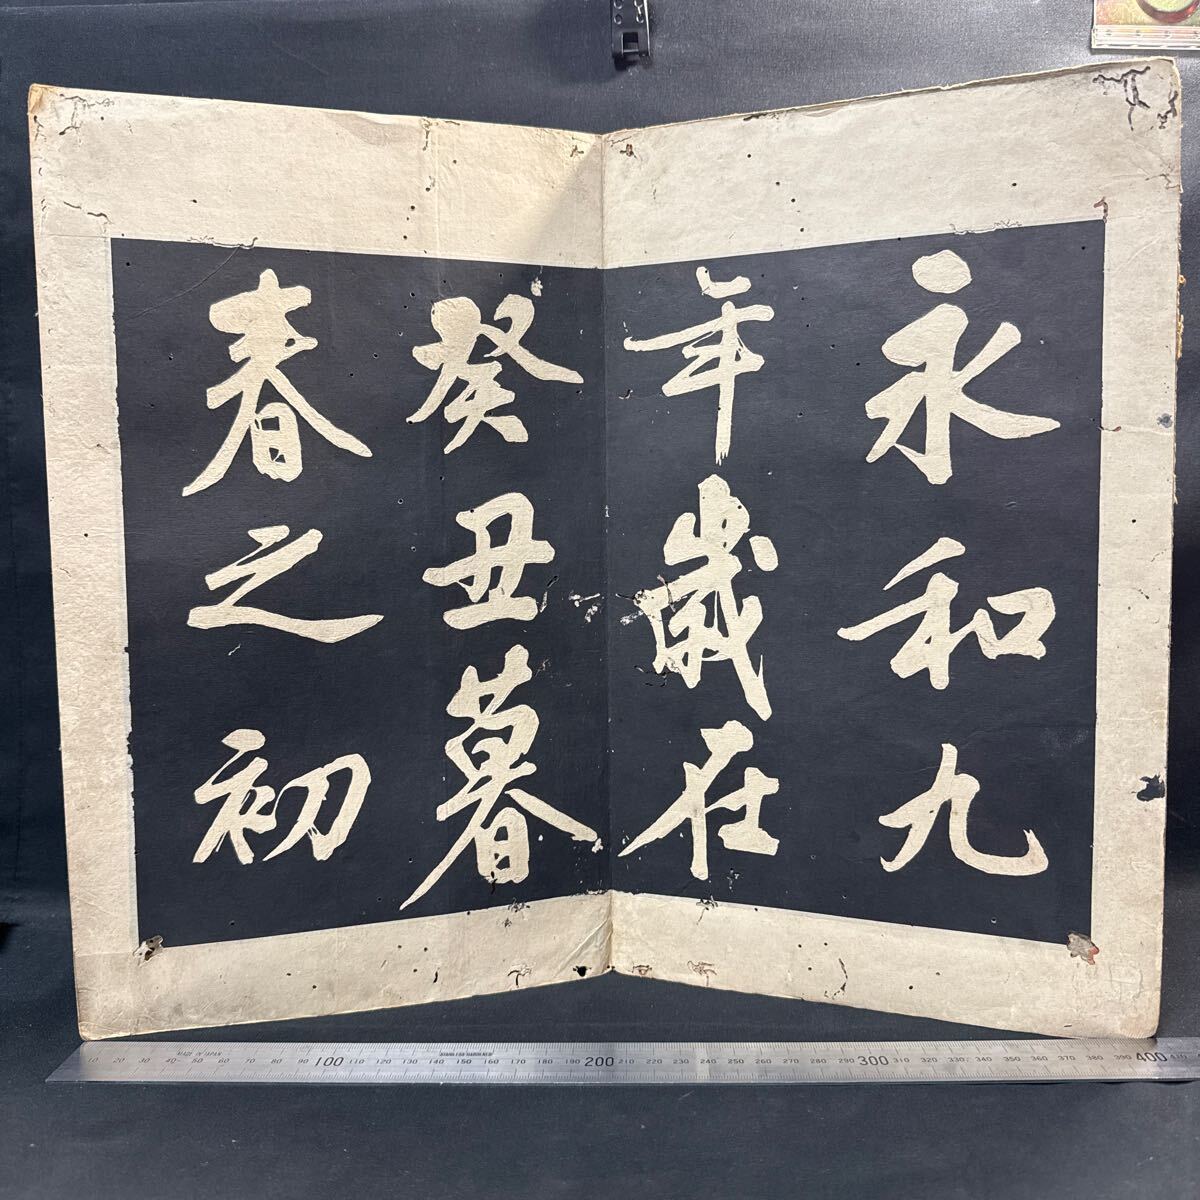 永和九
年歲在
癸丑暮
春之初
10 20 30 40 50 60 70 80 90 100 110 120 130 140 150 160 170 180 190 200 210 220 230 240 250 260 270 280 290 300 310 320 330 340 350 360 370 380 390 400 410
MADE IN JAPAN
STAINLESS HARDENED